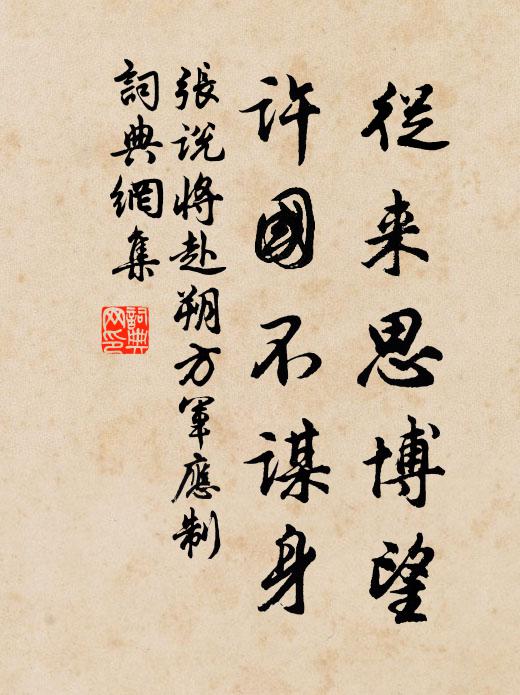 從来思博望
許國不謀身
張説將赴朔方軍應制
詞典網集
詞典
网印